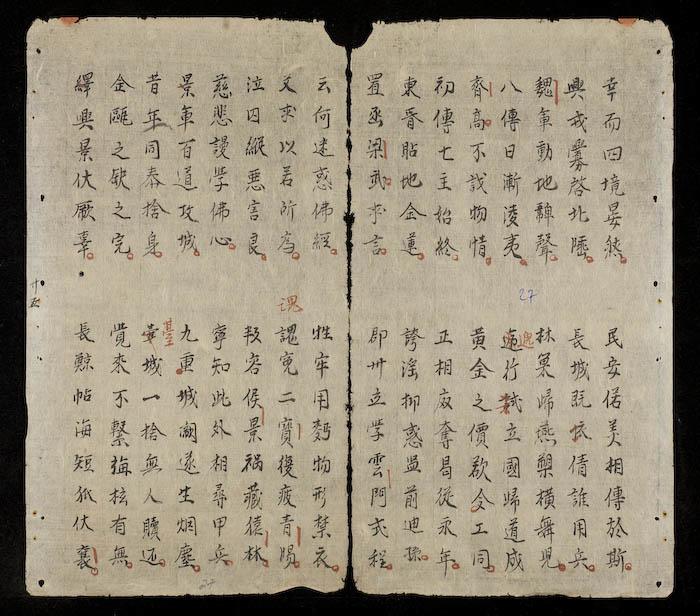 幸而四境晏然 民安偌美相傳於斯
興戎釁啓北陲 長城既依倩誰用兵
魏軍動地鞞聲 林巢歸燕槊橫舞兒
八傳日漸淩夷 遹行弒立國歸道成
齊高不識物情 黃金之價欲令工同
初傳七主始終 正相㓂奪昌從永年
東昏貼地金蓮 誇淫抑惑益前迪孫
置丞梁武求言 郡州立学雲門式程
27
云何迷惑佛經 牲牢用麪物形禁衣
文求以若所為 寃二寶後疲青賜
泣囚縱悪害良 叛容侯景禍藏猿林
慈悲謾學佛心 寧知此外相尋甲兵
景軍百道攻城 九重城闕遂生烟塵
昔年同泰捨身 臺城一捨無人贖还
金甌之缺之完 覺來不繫有無
繹興景伏厥辜 長鯨帖海短狐伏襄
廿五
27